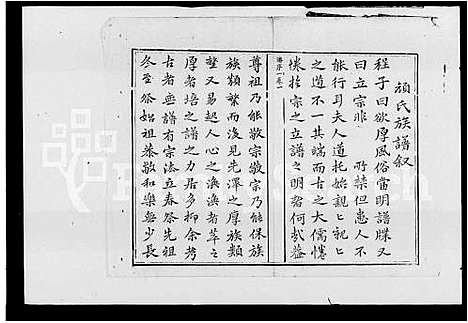 顏氏族譜叙
程子曰欲厚風俗當明譜牒又
曰立宗非 所禁但患人不
能行耳夫人道托始親親宗
之道不一其端而古之大儒
惓於宗之立譜之明者何哉蓋
譜序(卷一)
尊祖乃能敬宗敬宗乃能保族
族類繁而後見先澤之厚族類
登又見人心之渙渙者萃之
厚者培之譜之力居多抑余考
古者無譜有宗法立春祭先祖
冬至祭始祖恭敬和樂無少長